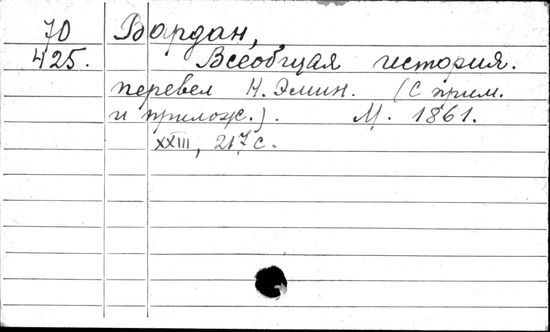 70 Вардан,
425. Всеобщая история.
перевел Н. Эмин. (С прим.
и прилож.). М. 1861.
XXIII, 217 с.